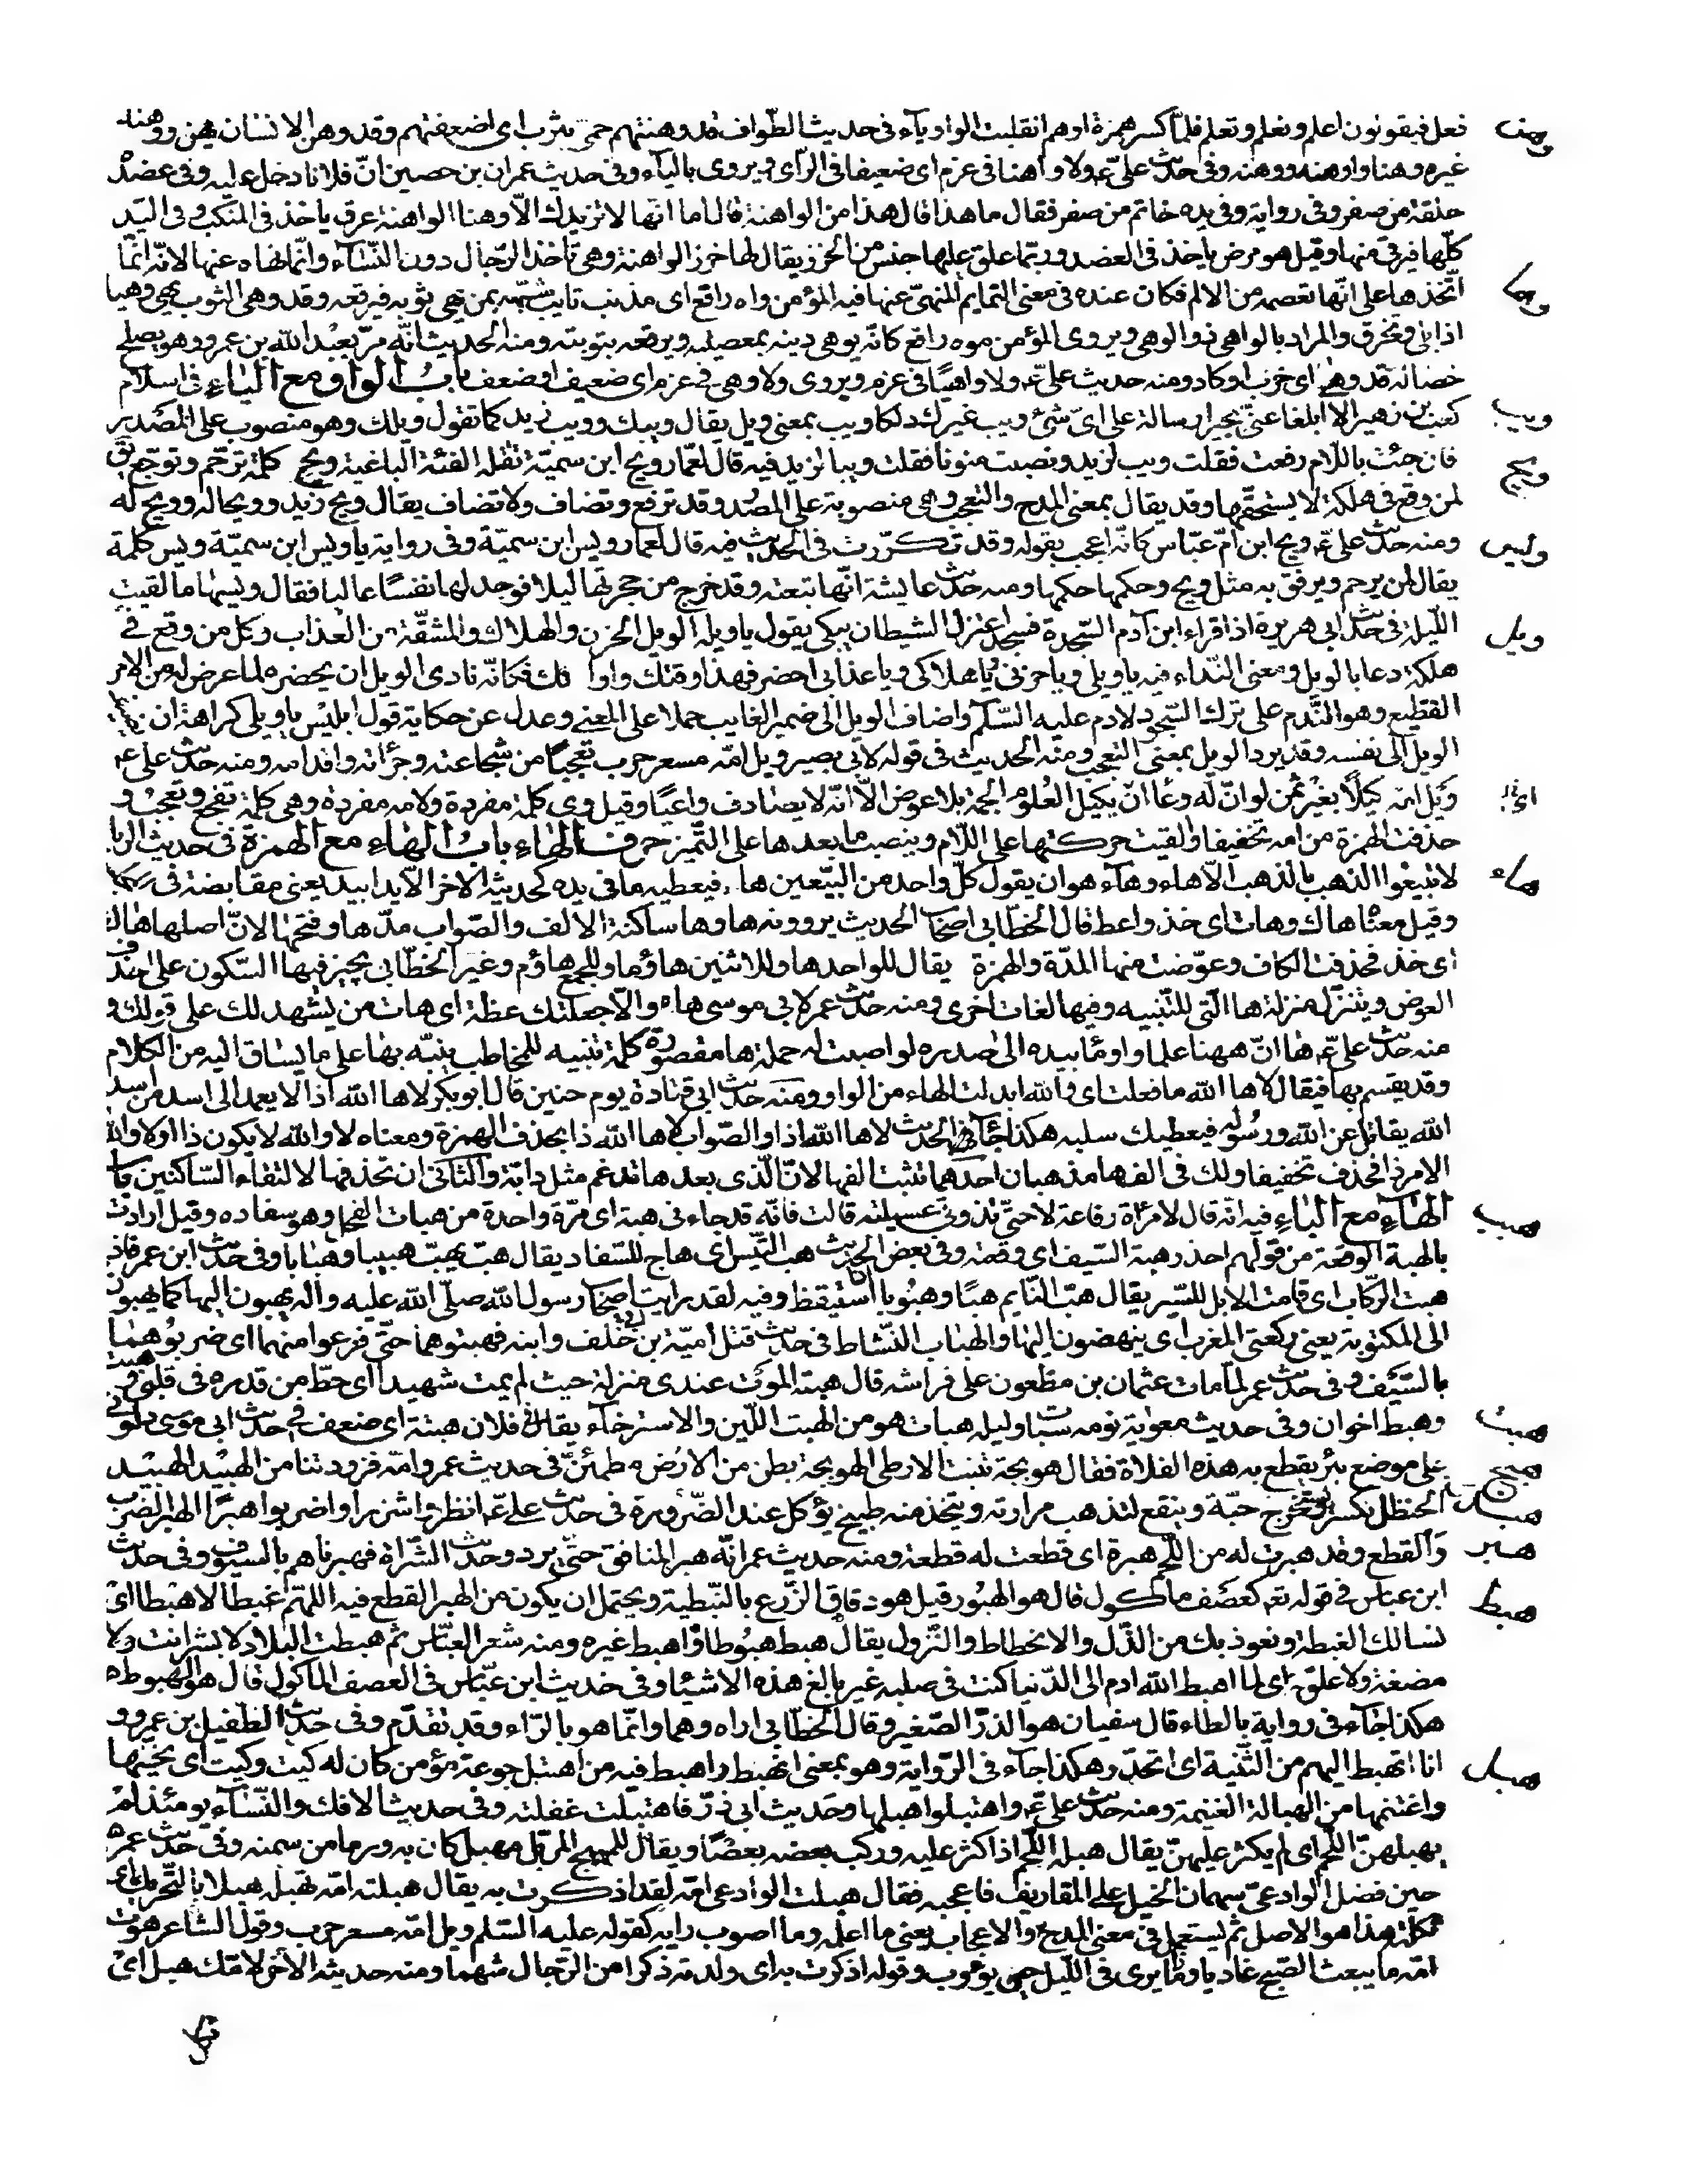 وهن فعل فيقولون اعلم ونعلم وتعلم فلما كسر همزة اوهم انقلبت الواو ياء فى حديث الطواف قد وهنتهم حمى يثرب اى اضعفتهم وقد وهن الانسان يهن ووهنه
غيره وهنا واوهنه ووهنه وفى حديث على ع ولا واهنا فى عزم اى ضعيفا فى الرأى ويروى بالياء وفى حديث عمران بن حصين ان فلانا دخل عليه وفى عضده
حلقة من صفر وفى رواية وفى يده خاتم من صفر فقال ما هذا قال هذا من الواهنة قال اما انها لا تزيدك الا وهنا الواهنة عرق ياخذ فى المنكب وفى اليد
كلها فيرقى منها وقيل هو مرض ياخذ فى العضد وربما علق عليها جنس من الخرز يقال لها خرز الواهنة وهى تاخذ الرجال دون النساء وانما نهاه عنها لانه انما
وها اتخذها على انها تعصمه من الالم فكان عنده فى معنى التمايم المنهى عنها فيه المؤمن واه راقع اى مذنب تايب شبهه بمن يهى ثوبه فيرقعه وقد وهى الثوب يهى وهيا
اذا بلى وتخرق والمراد بالواهى ذو الوهى ويروى المؤمن موه راقع كانه يوهى دينه بمعصيته ويرقعه بتوبته ومنه الحديث انه مر بعبد الله بن عمرو وهو يصلح
خصا له قد وهى اى خرب او كاد ومنه حديث على ع ولا واهيا فى عزم ويروى ولا وهى فى عزم اى ضعيف او ضعف باب الواو مع الياء فى اسلام
ويب كعب بن زهير الا ابلغا عنى بجيرا رسالة على اى شئ ويب غيرك دلكا ويب بمعنى ويل يقال ويبك وويب زيد كما تقول ويلك وهو منصوب على المصدر
ويح فان جئت باللام رفعت فقلت ويب لزيد ونصبت منونا فقلت ويبا لزيد فيه قال لعمار ويح ابن سمية تقتله الفئة الباغية ويح كلمة ترحم وتوجع تق
لمن وقع فى هلكة لا يستحقها وقد يقال بمعنى المدح والتعجب وهى منصوبة على المصدر وقد ترفع وتضاف ولا تضاف يقال ويح زيد وويحا له وويح له
ويس ومنه حديث على ع ويح ابن ام عباس كانه اعجب بقوله وقد تكررت فى الحديث فيه قال لعمار ويس ابن سمية وفى رواية يا ويس ابن سمية ويس كلمة
يقال لمن يرحم ويرفق به مثل ويح وحكمها حكمها ومنه حديث عايشة انها تبعته وقد خرج من حجرتها ليلا فوجد لها نفسا عاليا فقال ويسها ما لقيت
ويل الليلة فى حديث ابى هريرة اذا قراء ابن آدم السجدة فسجد اعتزل الشيطان يبكى يقول يا ويله الويل الحزن والهلاك والمشقة من العذاب وكل من وقع فى
هلكة دعا بالويل ومعنى النداء فيه يا ويلى ويا حزنى ويا هلاكى ويا عذابى احضر فهذا وقتك واوا نك فكانه نادى الويل ان يحضره لما عرض له من الامر
الفظيع وهو الندم على ترك السجود لادم عليه السلم واضاف الويل الى ضمير الغايب حملا على المعنى وعدل عن حكاية قول ابليس يا ويلى كراهة ان
الويل الى نفسه وقد يرد الويل بمعنى التعجب ومنه الحديث فى قوله لابى بصير ويل امه مسعر حرب تعجبا من شجاعته وجرأته واقدامه ومنه حديث على ع
ويل امه كيلا بغير ثمن لو ان له وعا ان يكيل العلوم الجمة بلا عوض الا انه لا يصادف واعيا وقيل وى كلمة مفردة ولامه مفردة وهى كلمة تفجع وتعجب و
حذفت الهمزة من امه تخفيفا والقيت حركتها على اللام وينصب ما بعدها على التميز حرف الهاء باب الهاء مع الهمزة فى حديث الربا
هاء لا تبيعوا الذهب بالذهب الا هاء وهاء هو ان يقول كل واحد من البيعين ها، فيعطيه ما فى يده كحديثه الاخر الا يدا بيد يعنى مقابضة فى
وقيل معناها هاك وهات اى خذ واعط قال الخطابى اصحاب الحديث يروونه ها وها ساكنة الالف والصواب مدها وفتحها لان اصلها هاك
اى خذ فحذفت الكاف وعوضت منها المدة والهمزة يقال للواحد ها وللاثنين هاؤما وللجمع هاؤم وغير الخطابى يجيز فيها السكون على حذف
العوض ويتنزل منزلة ها التى للتنبيه وفيها لغات اخرى ومنه حديث عمر لابى موسى هاء والا جعلتك عظة اى هات من يشهد لك على قولك و
منه حديث على ع ها ان ههنا علما واومأ بيده الى صدره لو اصبت له حملة ها مقصورة كلمة تنبيه للمخاطب ينبه بها على ما يساق اليه من الكلام
وقد يقسم بها فيقال لا ها الله ما فعلت اى والله ابدلت الهاء من الواو ومنه حديث ابى قتادة يوم حنين قال ابو بكر لا ها الله اذا لا يعمد الى اسد من اسد
الله يقاتل عن الله ورسوله فيعطيك سلبه هكذا جاء فى الحديث لا ها الله اذا والصواب لا ها الله ذا بحذف الهمزة ومعناه لا والله لا يكون ذا او لا والله
الامر ذا فحذف تخفيفا ولك فى الف ها مذهبان احدهما تثبت الفها لان الذى بعدها مدغم مثل دابة والثانى ان تحذفها لالتقاء الساكنين باب
هبب الهاء مع الباء فيه انه قال لامرأة رفاعة لا حتى تذوقى عسيلته قالت فانه قد جاءنى هبة اى مرة واحدة من هباب الفحل وهو سفاده وقيل ارادت
بالهبة الوقعة من قولهم احذر هبة السيف اى وقعته وفى بعض الحديث هب التيس اى هاج للسفاد يقال هب يهب هبيبا وهبابا وفى حديث ابن عمر فاذا
هبت الركاب اى قامت الابل للسير يقال هب النايم هبا وهبوبا استيقظ وفيه لقد رايت اصحاب رسول الله صلى الله عليه وآله يهبون اليها كما يهبون
الى المكتوبة يعنى ركعتى المغرب اى ينهضون اليها والهباب النشاط فى حديث قتل امية بن خلف وابنه فهبتوهما حتى فرغوا منهما اى ضربوهما
بالسيف وفى حديث عمر لما مات عثمان بن مظعون على فراشه قال هبته الموت عندى منزلة حيث لم يمت شهيدا اى حط من قدره فى قلبى وهبت
هبت وهبط اخوان وفى حديث معوية نومه سبات وليله هبات هو من الهبت اللين والاسترخاء يقال فى فلان هبتة اى ضعف فى حديث ابى موسى دلونى
هبج على موضع بئر يقطع به هذه الفلاة فقال هوبجة تنبت الارطى الهوبجة بطن من الارض مطمئن فى حديث عمر وامه فزودتنا من الهبيد الهبيد
هبد الحنظل يكسر ويستخرج حبه وينقع لتذهب مرارته ويتخذ منه طبيخ يؤكل عند الضرورة فى حديث على ع انظروا شزرا واضربوا هبرا الهبر الضرب
هبر والقطع وقد هبرت له من اللحم هبرة اى قطعت له قطعة ومنه حديث عمر انه هبر المنافق حتى برد وحديث الشراة فهبرناهم بالسيوف وفى حديث
هبط ابن عباس فى قوله تع كعصف مأكول قال هو الهبور قيل هو دقاق الزرع بالنبطية ويحتمل ان يكون من الهبر القطع فيه اللهم غبطا لا هبطا اى
نسالك الغبطة ونعوذ بك من الذل والانحطاط والنزول يقال هبط هبوطا واهبط غيره ومنه شعر العباس ثم هبطت البلاد لا بشر انت ولا
مضغة ولا علق اى لما اهبط الله ادم الى الدنيا كنت فى صلبه غير بالغ هذه الاشياء وفى حديث ابن عباس فى العصف المأكول قال هو الهبوط
هكذا جاء فى رواية بالطاء قال سفيان هو الذر الصغير وقال الخطابى اراه وهما وانما هو بالراء وقد تقدم وفى حديث الطفيل بن عمرو و
هبل انا اتهبط اليهم من الثنية اى اتحدر هكذا جاء فى الرواية وهو بمعنى انهبط واهبط فيه من اهتبل جوعة مؤمن كان له كيت وكيت اى تحينها
واغتنمها من الهبالة الغنيمة ومنه حديث على ع واهتبلوا هبلها وحديث ابى ذر فاهتبلت غفلته وفى حديث الافك والنساء يومئذ لم
يهبلهن اللحم اى لم يكثر عليهن يقال هبله اللحم اذا كثر عليه وركب بعضه بعضا ويقال للمهيج المربل مهبل كان به ورما من سمنه وفى حديث عمر
حين فضل الوادعى سهمان الخيل على المقاريف فاعجبه فقال هبلت الوادعى امه لقد اذكرت به يقال هبلته امه تهبله هبلا بالتحريك اى
ثكلته هذا هو الاصل ثم يستعمل فى معنى المدح والاعجاب يعنى ما اعلمه وما اصوب رايه كقوله عليه السلم ويل امه مسعر حرب وقول الشاعر هوت
امه ما يبعث الصبح غاديا وماذا يرى فى الليل حين يؤوب وقوله اذكرت به اى ولدته ذكرا من الرجال شهما ومنه حديثه الآخر لامك هبل اى